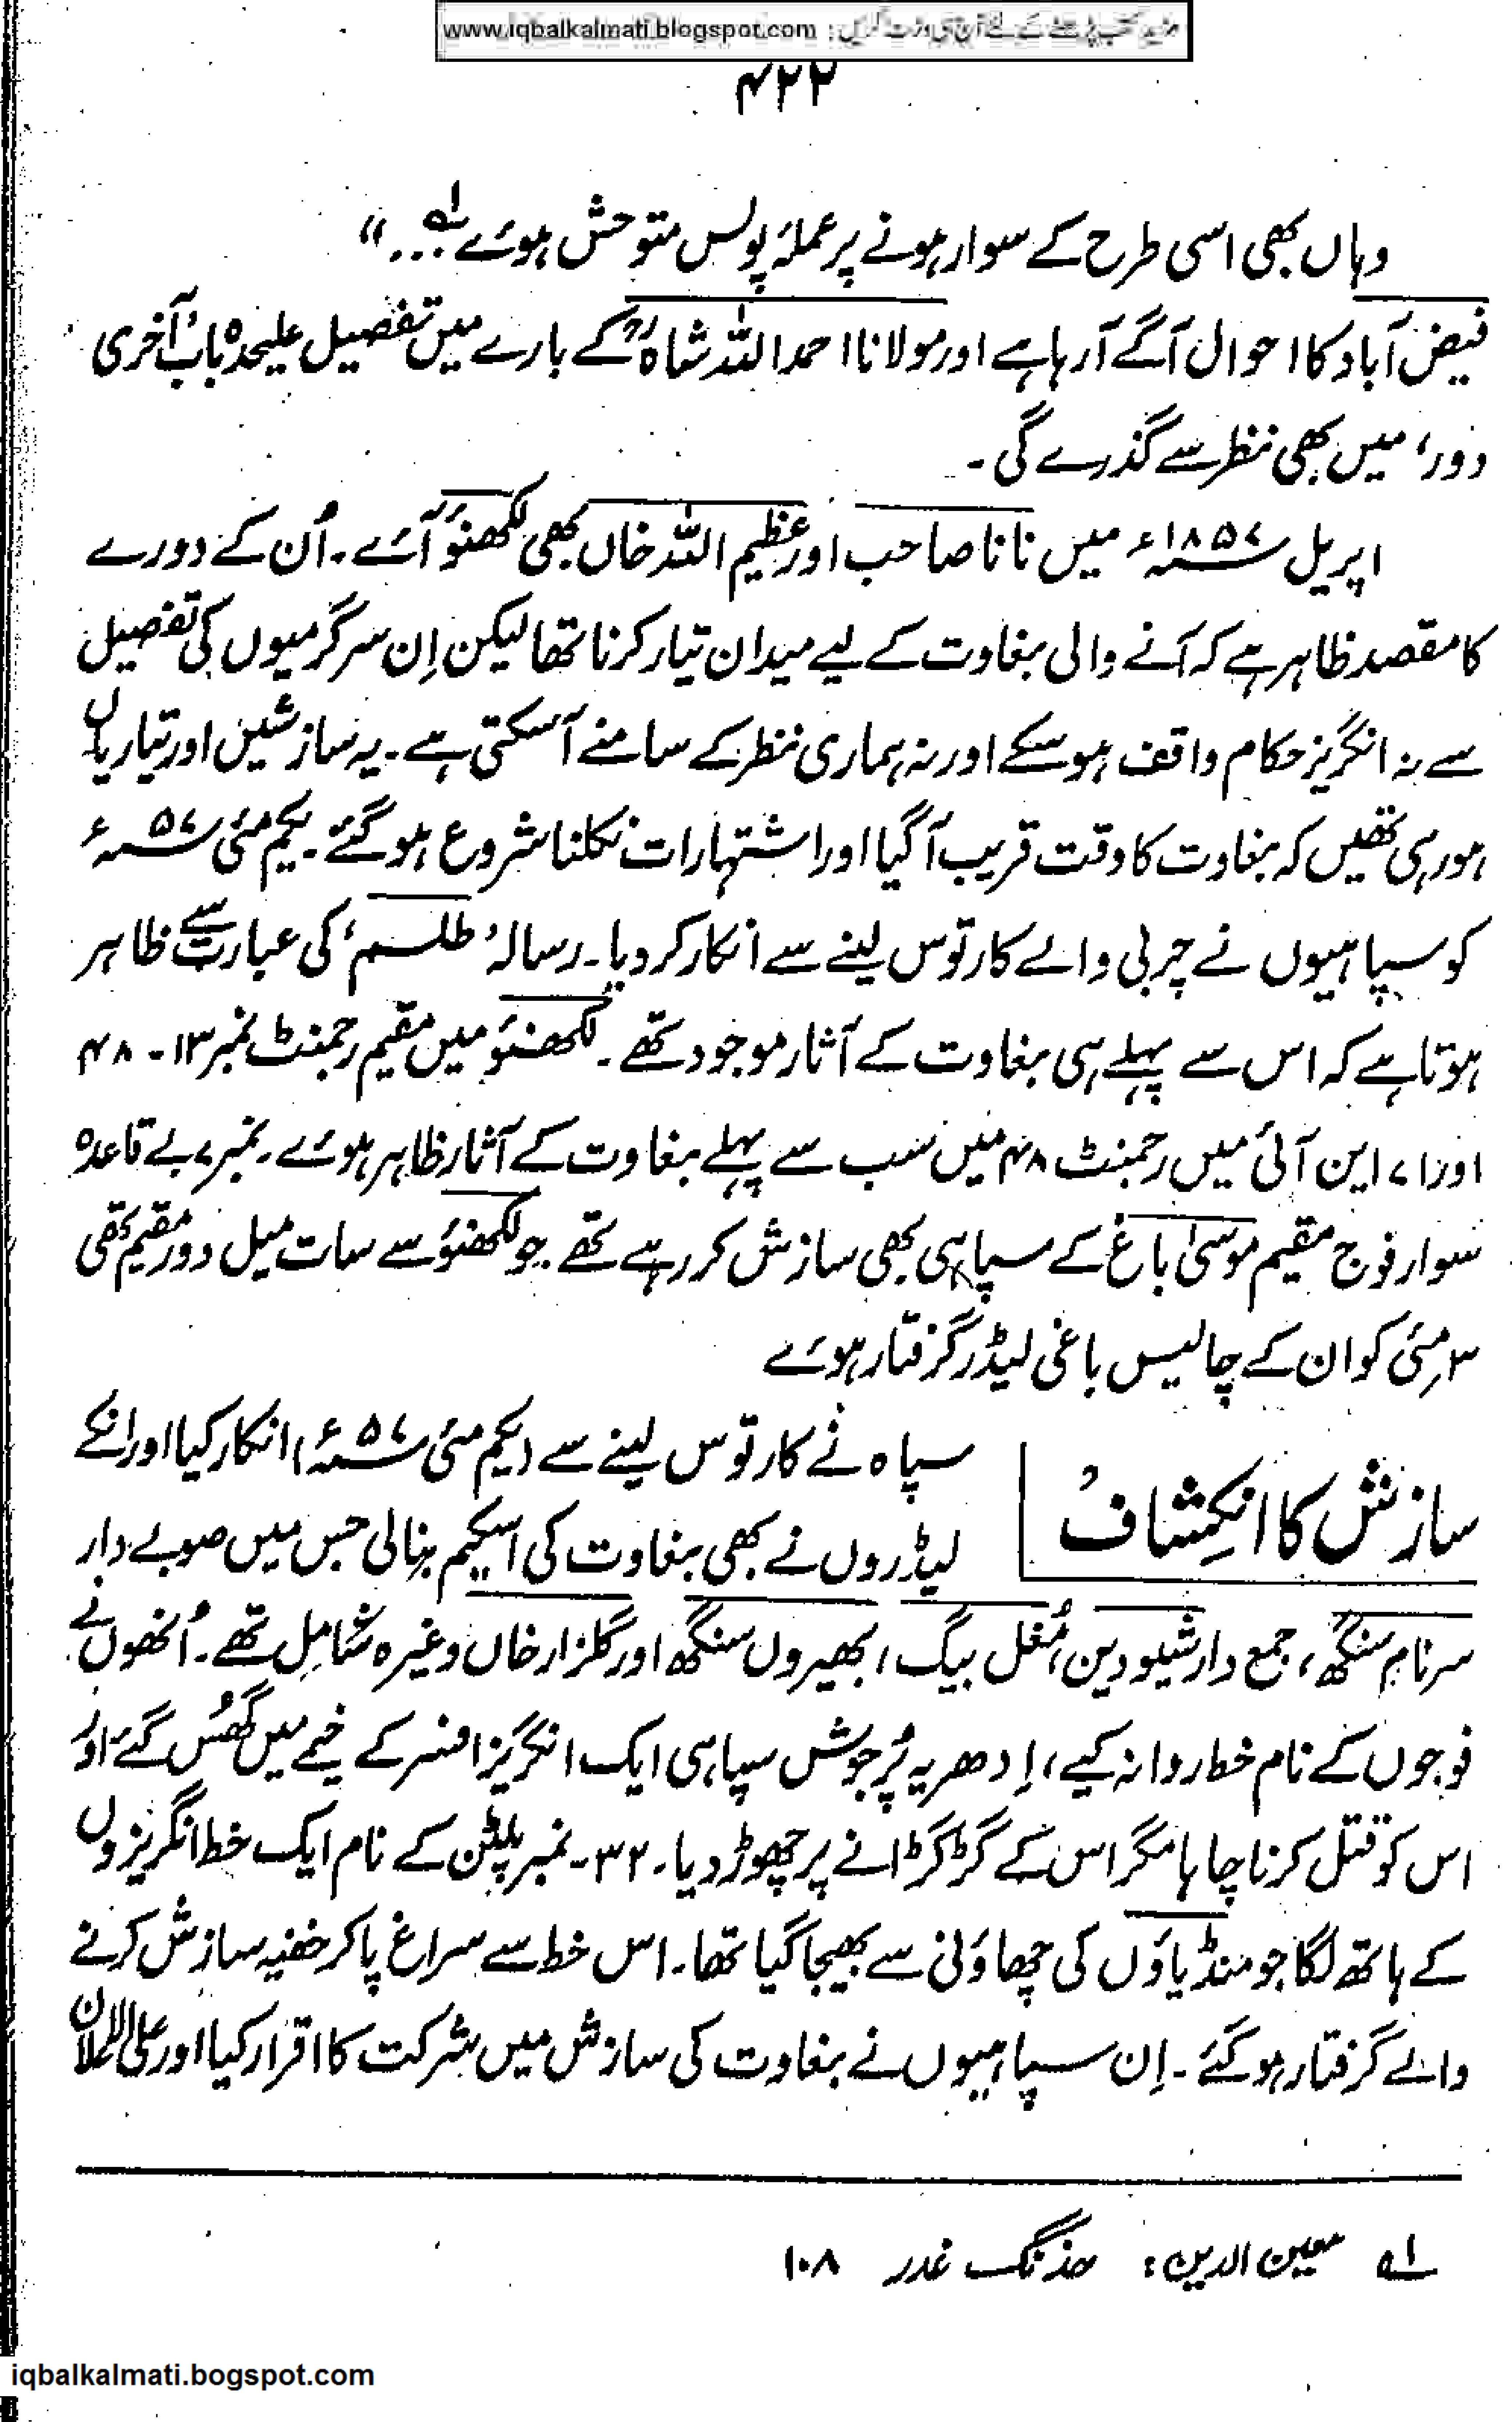 مزید کتب پڑھنے کے لئے آج ہی وزٹ کریں : www.iqbalkalmati.blogspot.com
۴۲۲
وہاں بھی اسی طرح کے سوار ہونے پر عملۂ پولس متوحش ہوئے لہ..."
فیض آباد کا احوال آگے آرہا ہے اور مولانا احمد اللہ شاہؒ کے بارے میں تفصیل علیحدہ باب 'آخری
دور' میں بھی نظر سے گذرے گی ۔
اپریل ۱۸۵۷ء میں نانا صاحب اور عظیم اللہ خاں بھی لکھنؤ آئے ۔ اُن کے دورے
کا مقصد ظاہر ہے کہ آنے والی بغاوت کے لیے میدان تیار کرنا تھا لیکن اِن سرگرمیوں کی تفصیل
سے نہ انگریز حکام واقف ہو سکے اور نہ ہماری نظر کے سامنے آسکتی ہے ۔ یہ سازشیں اور تیاریاں
ہو رہی تھیں کہ بغاوت کا وقت قریب آگیا اور اشتہارات نکلنا شروع ہو گئے ۔ یکم مئی ۵۷ء
کو سپاہیوں نے چربی والے کارتوس لینے سے انکار کر دیا ۔ رسالہ 'طلسم' کی عبارت سے ظاہر
ہوتا ہے کہ اس سے پہلے ہی بغاوت کے آثار موجود تھے ۔ لکھنؤ میں مقیم رجمنٹ نمبر ۱۳ - ۴۸
اور ۷۱ این آئی میں رجمنٹ ۴۸ میں سب سے پہلے بغاوت کے آثار ظاہر ہوئے ۔ نمبر ۷ بے قاعدہ
سوار فوج مقیم موسیٰ باغ کے سپاہی بھی سازش کر رہے تھے جو لکھنؤ سے سات میل دور مقیم تھی
۳ مئی کو ان کے چالیس باغی لیڈر گرفتار ہوئے
سازش کا انکِشاف
سپاہ نے کارتوس لینے سے (یکم مئی ۵۷ء) انکار کیا اور انکے
لیڈروں نے بھی بغاوت کی اسکیم بنالی جس میں صوبے دار
سرنام سنگھ ، جمع دار شیو دین ، مُغل بیگ ، بھیروں سنگھ اور گلزار خاں وغیرہ شامِل تھے ۔ اُنھوں نے
فوجوں کے نام خط روانہ کیے ، اِدھر یہ پُرجوش سپاہی ایک انگریز افسر کے خیمے میں گھُس گئے اور
اس کو قتل کرنا چاہا مگر اس کے گڑگڑانے پر چھوڑ دیا ۔ ۳۲ - نمبر پلٹن کے نام ایک خط انگریزوں
کے ہاتھ لگا جو منڈیاؤں کی چھاؤنی سے بھیجا گیا تھا ۔ اس خط سے سراغ پا کر خفیہ سازش کرنے
والے گرفتار ہو گئے ۔ اِن سپاہیوں نے بغاوت کی سازش میں شرکت کا اقرار کیا اور علی الاعلان
لہ معین الدین : خدنگ غدر ۱۰۸
iqbalkalmati.bogspot.com